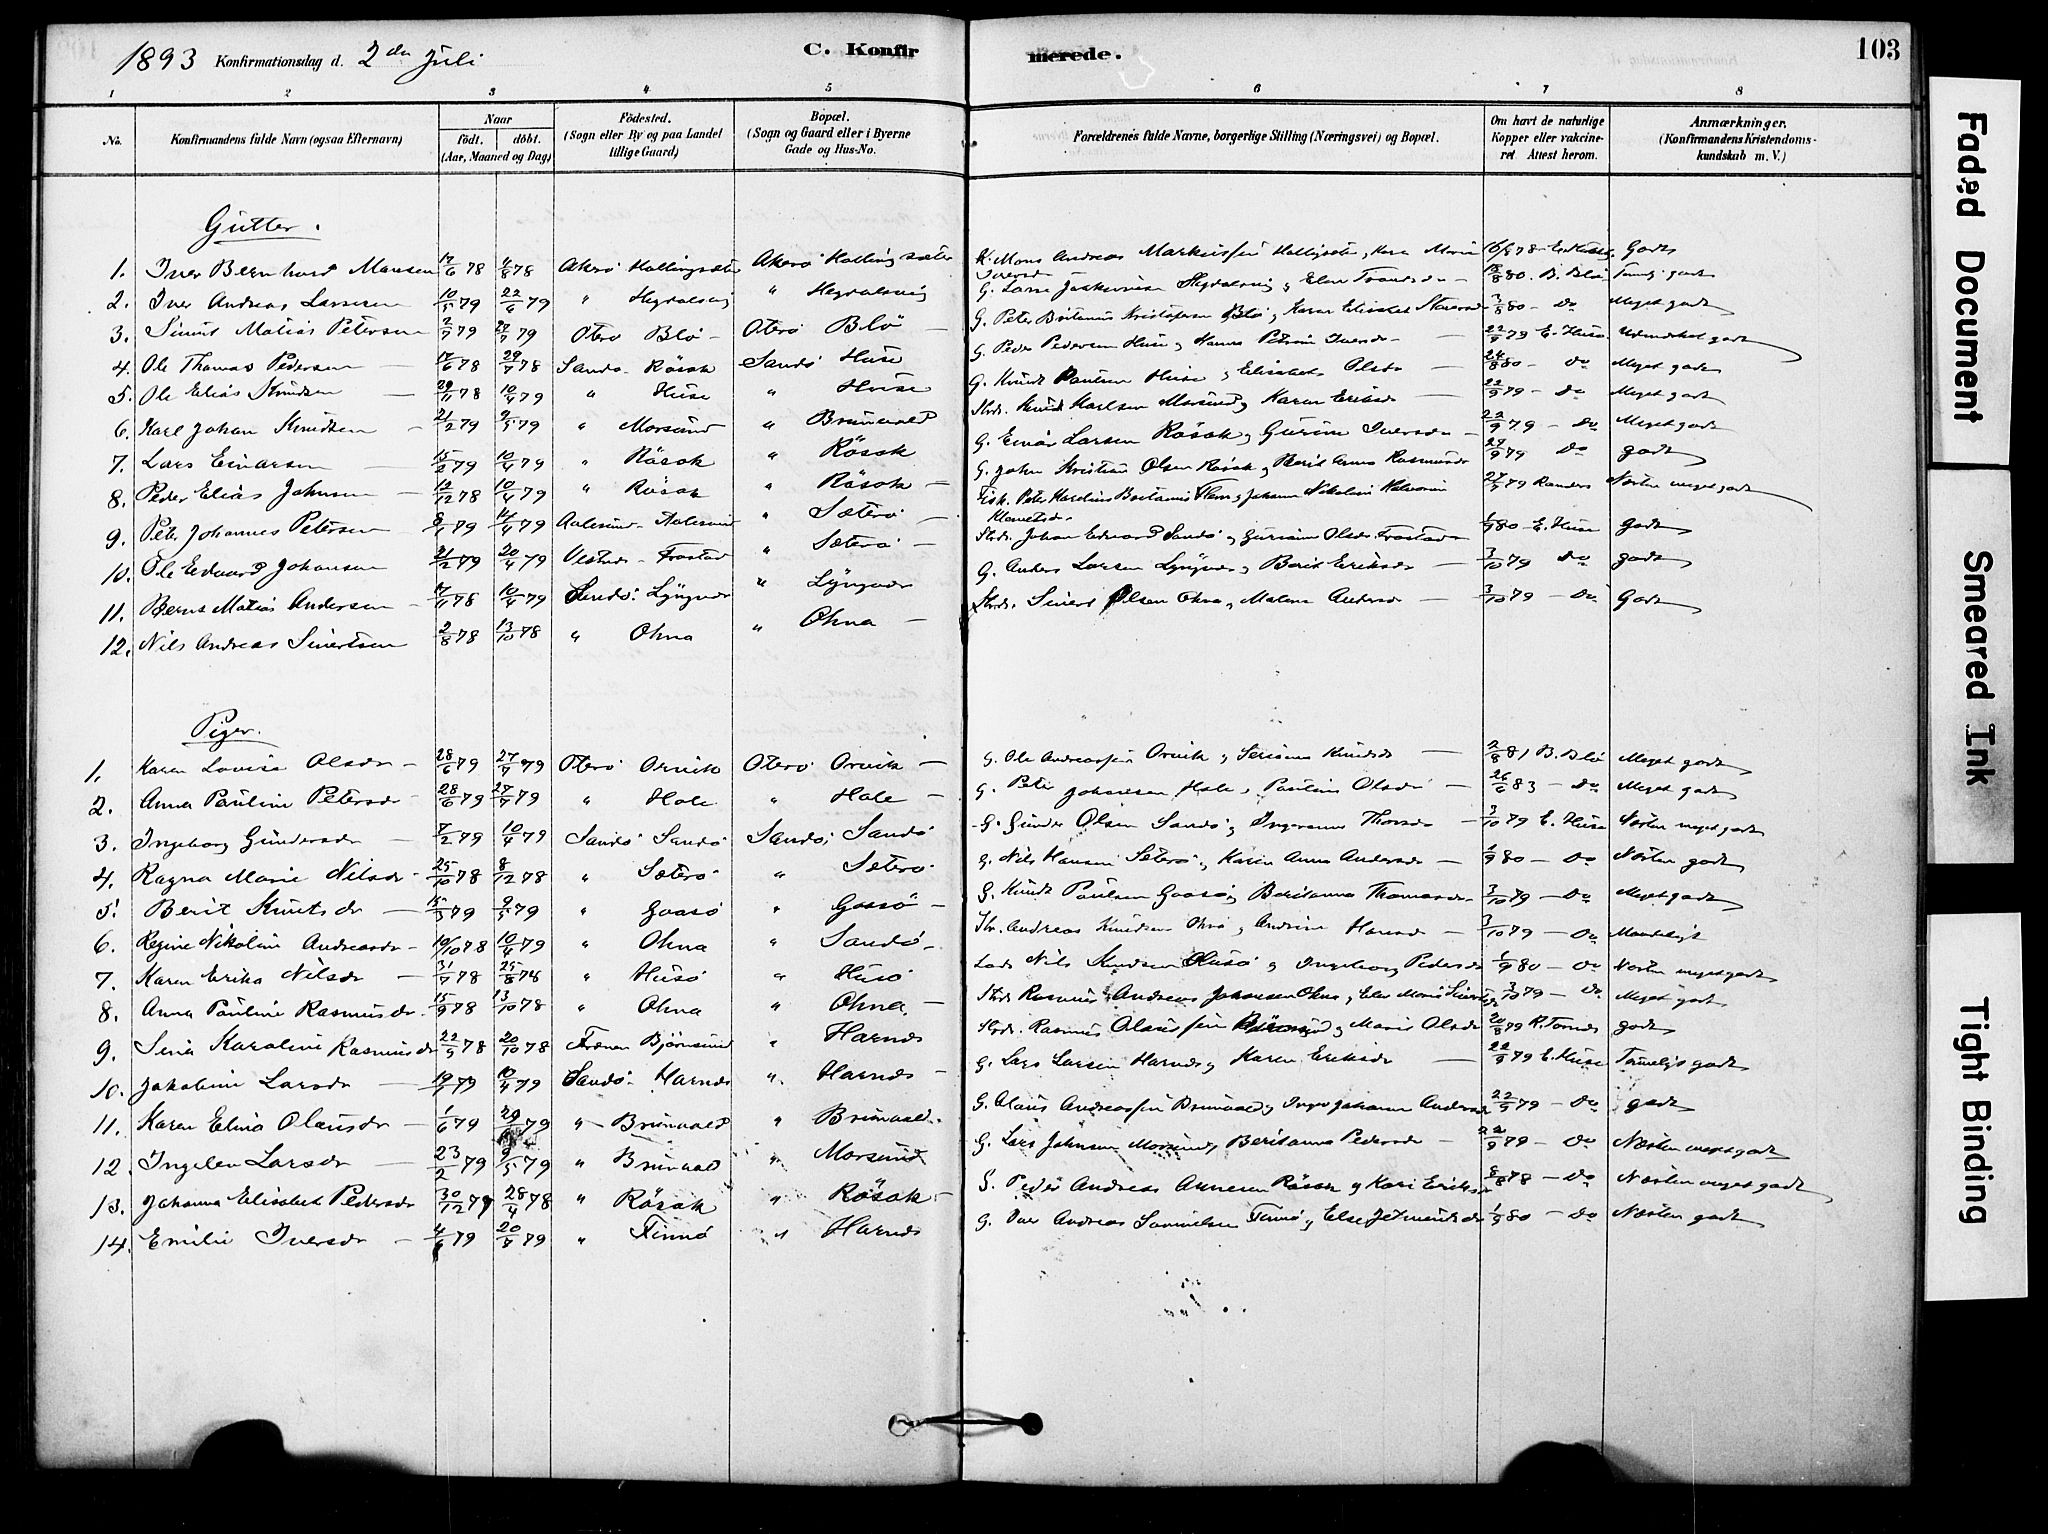 1893 Konfirmationsdag d. 2den Juli
C. Konfirmerede.
103
1 2 3 4 5 6 7 8
No. Konfirmandens fulde Navn (ogsaa Efternavn) Naar födt. döbt. (Aar, Maaned og Dag) Födested. (Sogn eller By og paa Landet tillige Gaard) Bopæl. (Sogn og Gaard eller i Byerne Gade og Hus-No. Forældrenes fulde Navne, borgerlige Stilling (Næringsvei) og Bopæl. Om havt de naturlige Kopper eller vakcineret Attest herom. Anmærkninger. (Konfirmandens Kristendomskundskab m. V.)
Gutter.
1. Iver Bernhard Monsen 17/6 78 4/8 78 Akerö Hollingsæter Akerö Hollingsæter K. Mons Andreas Markussen Godt
2. Iver Andreas Larsen 10/5 79 22/6 79 " Hegdalsvig " Hegdalsvig G. Lars Hegdalsvig 80. B. Blö godt
3. Sivert Matias Petersen 2/7 79 27/7 79 Oterö Blö - Oterö Blö - G. Peter Kristofersen Blö, Karen Elisabet 3/8 80 - Do Meget godt
4. Ole Thomas Pedersen 17/6 78 29/7 78 Sandö Rösok Sandö Huse G. Peder Pedersen Huse, Hanna 22/9 79 E. Huse Udmerket godt
5. Ole Elias Knudsen 29/11 78 10/4 79 " Huse " Huse G. Knudt Paulsen Huse, Elisabet Olsdr 24/8 80 - Do Meget godt
6. Karl Johan Knudsen 21/2 79 2/5 79 " Morsund " Brunvold Karlsen Morsund, Karen Eriksdr 22/9 79 - Do Meget godt
7. Lars Einarsen 15/2 79 10/4 79 " Rösok " Rösok G. Einar Larsen Rösok, Gurine Iversdr 22/9 79 - Do Meget godt
8. Peder Elias Johnsen 12/12 78 10/4 79 " Rösok " Rösok - G. John Kristian Olsen Rösok, Berit Anna Rasmusdr 27/9 79 Do godt
9. Peter Johannes Petersen 79 79 Aalesund Aalesund " Sæterö - Fisk. Peter Karolius 27/9 79 Randers Næsten meget godt
10. Ole Edvard Johansen 21/2 79 20/4 79 Frostad " Sæterö - Johan Edvard Sandö, Olsdr. Frostad 1/9 80 - E. Huse godt
11. Bernt Matias Andersen 17/11 78 10/4 79 Sandö Lyngnes " Lyngnes G. Anders Larsen Lyngnes, Berit Eriksdr - 3/10 79 Do godt
12. Nils Andreas Sivertsen 2/8 78 13/10 78 " Ohna " Ohna - Sivert Olsen Ohna, Malene Andersdr - 3/10 79 - Do Godt
Piger.
1. Karen Lovise Olsdr - 28/6 79 27/7 79 Oterö Orvik Oterö Orvik - G. Ole Andreassen Orvik, Knudsdr - 2/8 81 B. Blö Meget godt
2. Anna Pauline Petersdr 28/6 79 27/7 79 " Hole " Hole - G. Peter Johansen Hole, Pauline Olsdr - 26/6 83 - Do Meget godt
3. Ingeborg Gundersdr - 7/2 79 10/4 79 Sandö Sandö Sandö Sandö G. Gunder Olsen Sandö, Thorsdr - 3/10 79 E. Huse Næsten meget godt
4. Ragna Marie Nilsdr 25/10 78 8/12 78 " Sæterö " Sæterö G. Nils Hansen Seterö, Karen Anna Andersdr - 1/9 80 - Do Næsten godt
5. Berit Knutsdr - 15/3 79 2/5 79 " Gaasö " Gaasö - G. Knudt Paulsen Gaasö, Beritanna Thomasdr 3/10 79 - Do Meget godt
6. Regine Nikoline Andreasdr - 10/10 78 10/4 79 " Ohna " Sandö - Andreas Knudsen Ohna, Andrine Hansdr - 3/10 79 - Do Maadeligt
7. Karen Erika Nilsdr - 31/7 78 25/8 78 " Husö " Husö Nils Knudsen Husö, Ingeborg Pedersdr 1/9 80 - Do Næsten meget godt
8. Anna Pauline Rasmusdr. 15/9 78 13/10 78 " Ohna " Ohna - Rasmus Andreas Johansen Ohna, 3/10 79 - Do Meget godt
9. Sina Karoline Rasmusdr 22/9 78 20/10 78 Frænen Björnsund " Harnes Rasmus Olaussen Björnsund, Marie Olsdr 20/8 79 godt
10. Jakobine Larsdr - 79 10/4 79 Sandö Harnes " Harnes - G. Lars Larsen Harnes, Karen Eriksdr - 22/9 79 E. Huse Temmelig godt
11. Karen Elina Olausdr - 1/6 79 29/6 79 " Brunvold " Brunvold - G. Olaus Andreassen Brunvold, Johanna Andersdr 22/9 79 - Do godt
12. Ingelen Larsdr - 23/2 79 9/5 79 " Brunvold " Morsund G. Lars Johnsen Morsund, Beritanna Pedersdr - 22/9 79 - Do Næsten meget godt
13. Johanna Elisabet Pedersdr 30/12 79 28/4 78 " Rösok " Rösok - Peder Andreas Rösok, Kari Eriksdr 8/8 78 - Do Næsten meget godt
14. Emilie Iversdr - 4/6 79 20/7 79 " Finnö " Harnes G. Iver Andreas Samuelsen Finnö, Else Jetmundsdr 1/9 80 - Do Næsten godt
Faded Document
Smeared Ink
Tight Binding